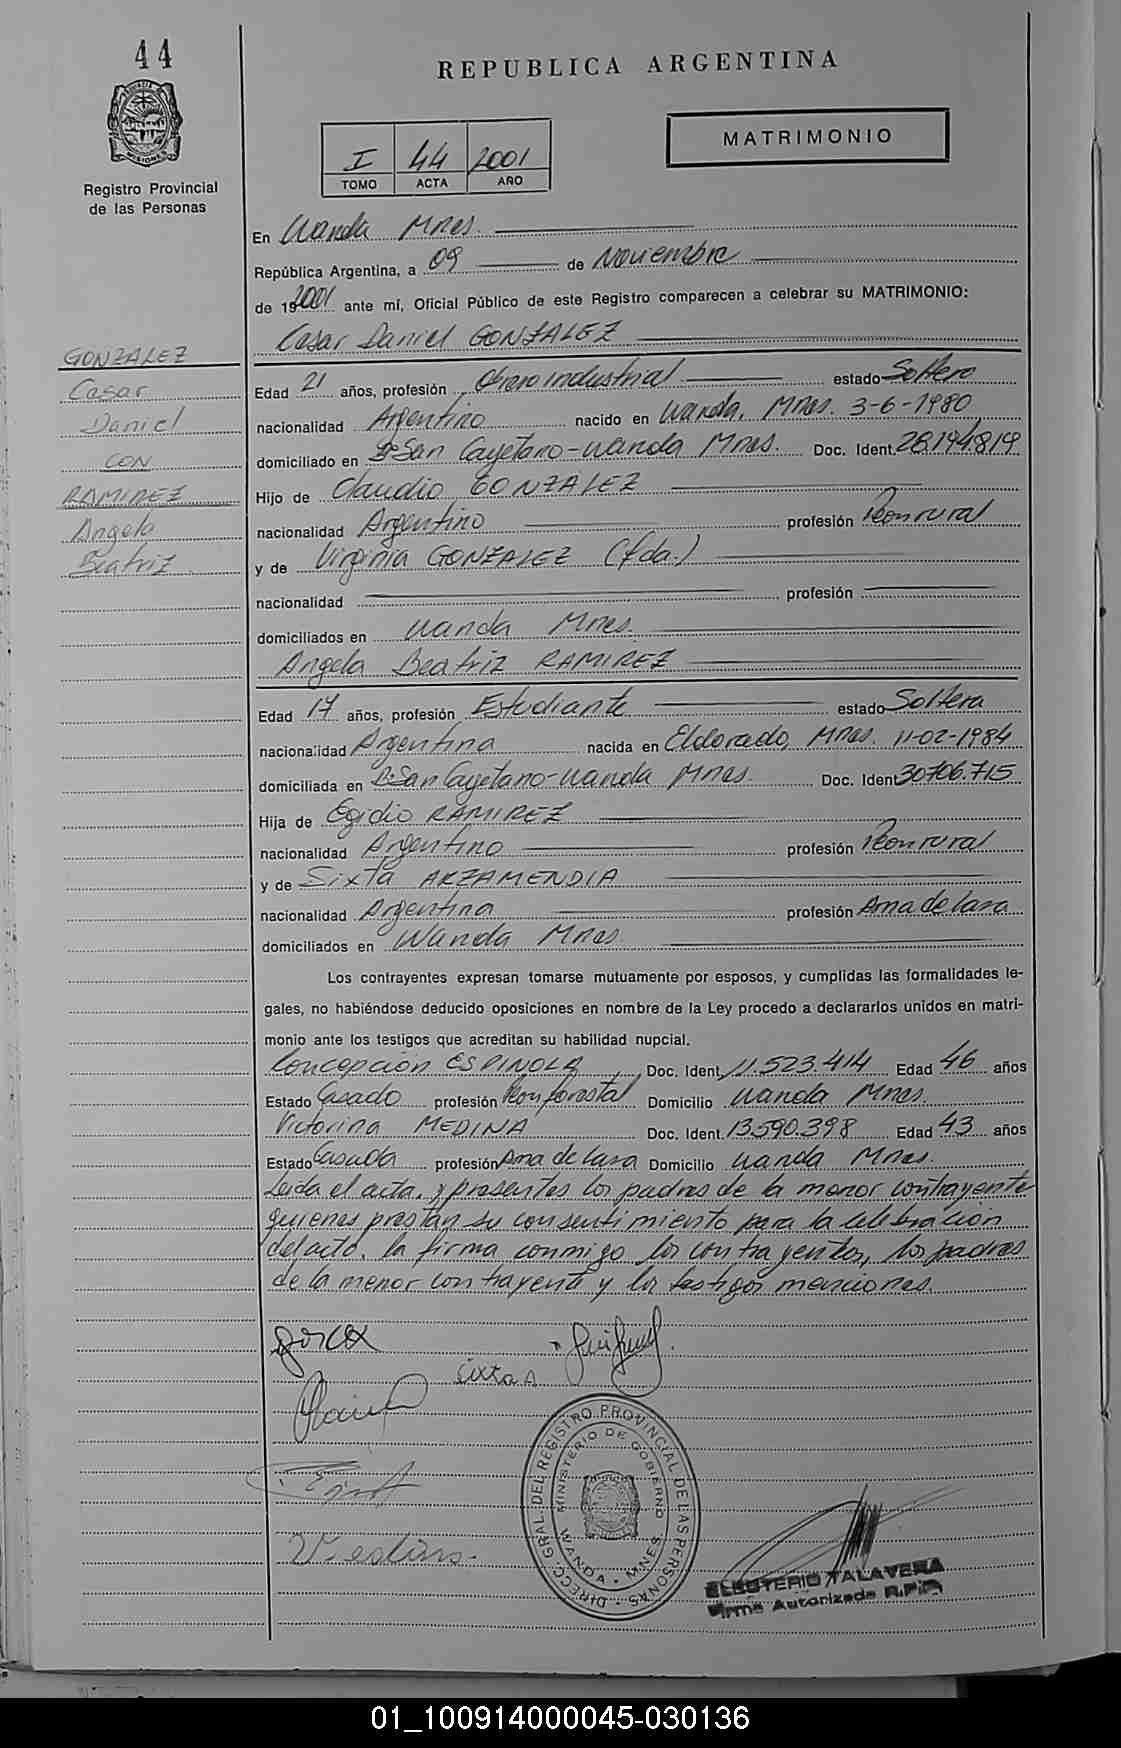 44
REPUBLICA ARGENTINA
MISIONES
Registro Provincial
de las Personas
I 44 2001
TOMO ACTA AÑO
MATRIMONIO
En Wanda Mnes.
República Argentina, a 09 de Noviembre
de 19 2001 ante mí, Oficial Público de este Registro comparecen a celebrar su MATRIMONIO:
Cesar Daniel GONZALEZ
GONZALEZ
Cesar
Daniel
CON
RAMIREZ
Angela
Beatriz
Edad 21 años, profesión Obrero industrial estado Soltero
nacionalidad Argentino nacido en Wanda, Mnes. 3-6-1980
domiciliado en Bº San Cayetano-Wanda Mnes. Doc. Ident. 28.194.819
Hijo de Claudio GONZALEZ
nacionalidad Argentino profesión Peon rural
y de Virginia GONZALEZ (fda.)
nacionalidad profesión
domiciliados en Wanda Mnes.
Angela Beatriz RAMIREZ
Edad 17 años, profesión Estudiante estado Soltera
nacionalidad Argentina nacida en Eldorado, Mnes. 11-02-1984
domiciliada en Bº San Cayetano-Wanda Mnes. Doc. Ident 30.706.715
Hija de Egidio RAMIREZ
nacionalidad Argentino profesión Peon rural
y de Sixta ARZAMENDIA
nacionalidad Argentina profesión Ama de Casa
domiciliados en Wanda Mnes.
Los contrayentes expresan tomarse mutuamente por esposos, y cumplidas las formalidades le-
gales, no habiéndose deducido oposiciones en nombre de la Ley procedo a declararlos unidos en matri-
monio ante los testigos que acreditan su habilidad nupcial.
Concepción ESPINOLA Doc. Ident. 11.523.414 Edad 46 años
Estado Casado profesión Peon forestal Domicilio Wanda Mnes.
Victorina MEDINA Doc. Ident. 13.590.398 Edad 43 años
Estado Casada profesión Ama de Casa Domicilio Wanda Mnes.
Leida el acta, y presentes los padres de la menor contrayente
quienes prestan su consentimiento para la celebración
del acto, la firma conmigo los contrayentes, los padres
de la menor contrayente y los testigos menciones.
Sixta A
DIRECC. GRAL. DEL REGISTRO PROVINCIAL DE LAS PERSONAS
MINISTERIO DE GOBIERNO
WANDA - MNES.
ELEUTERIO TALAVERA
Firma Autorizada R.P.P.
01_100914000045-030136